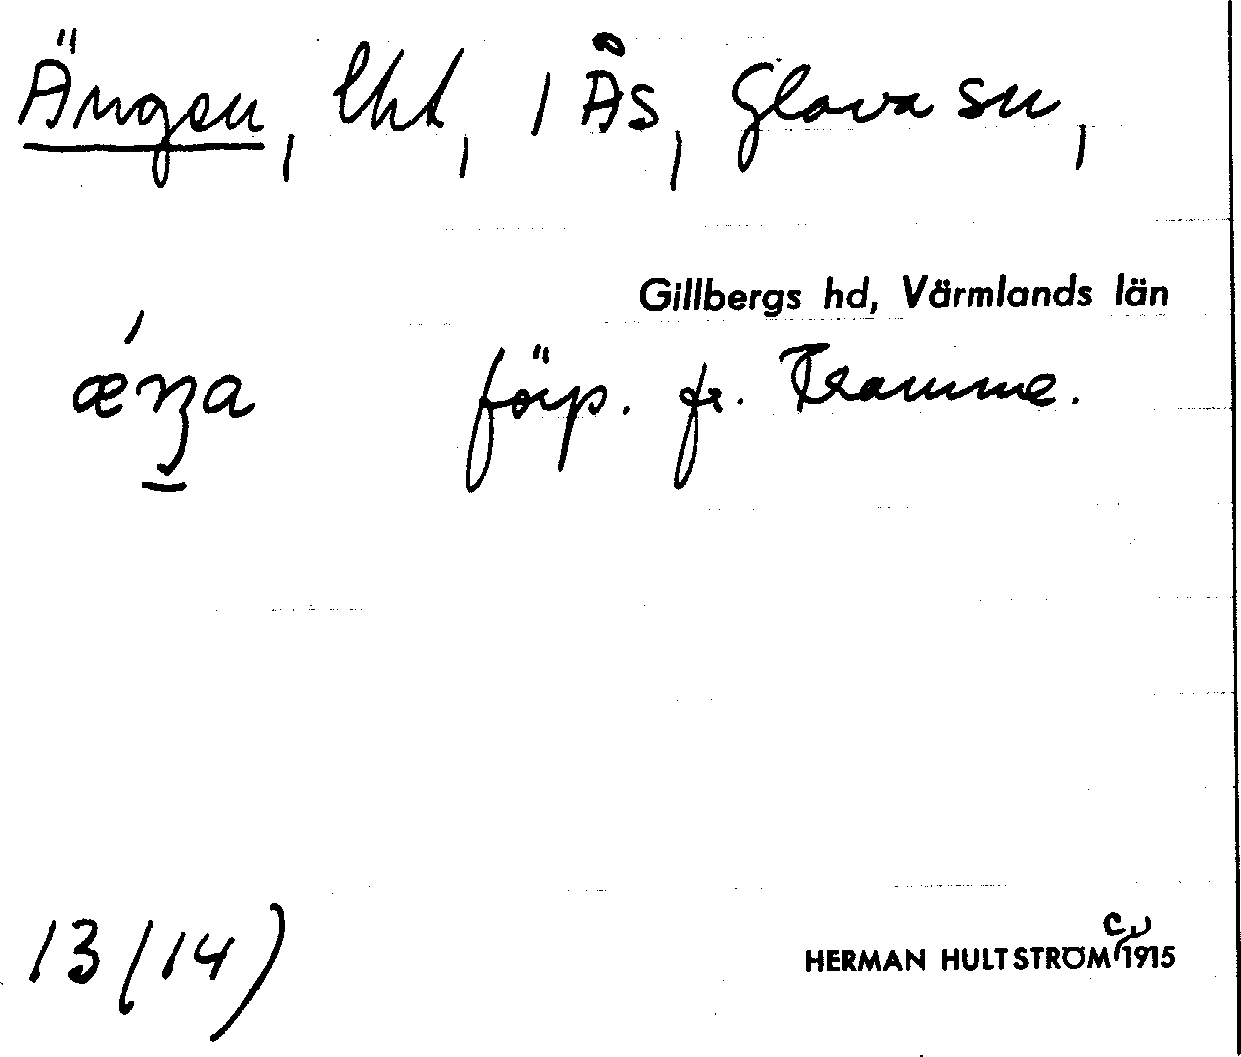 Ängen, lht, i Ås, Glava sn,
Gillbergs hd, Värmlands län
ǽŋa förp. fr. Tramme.
13 (14)
HERMAN HULTSTRÖM 1915